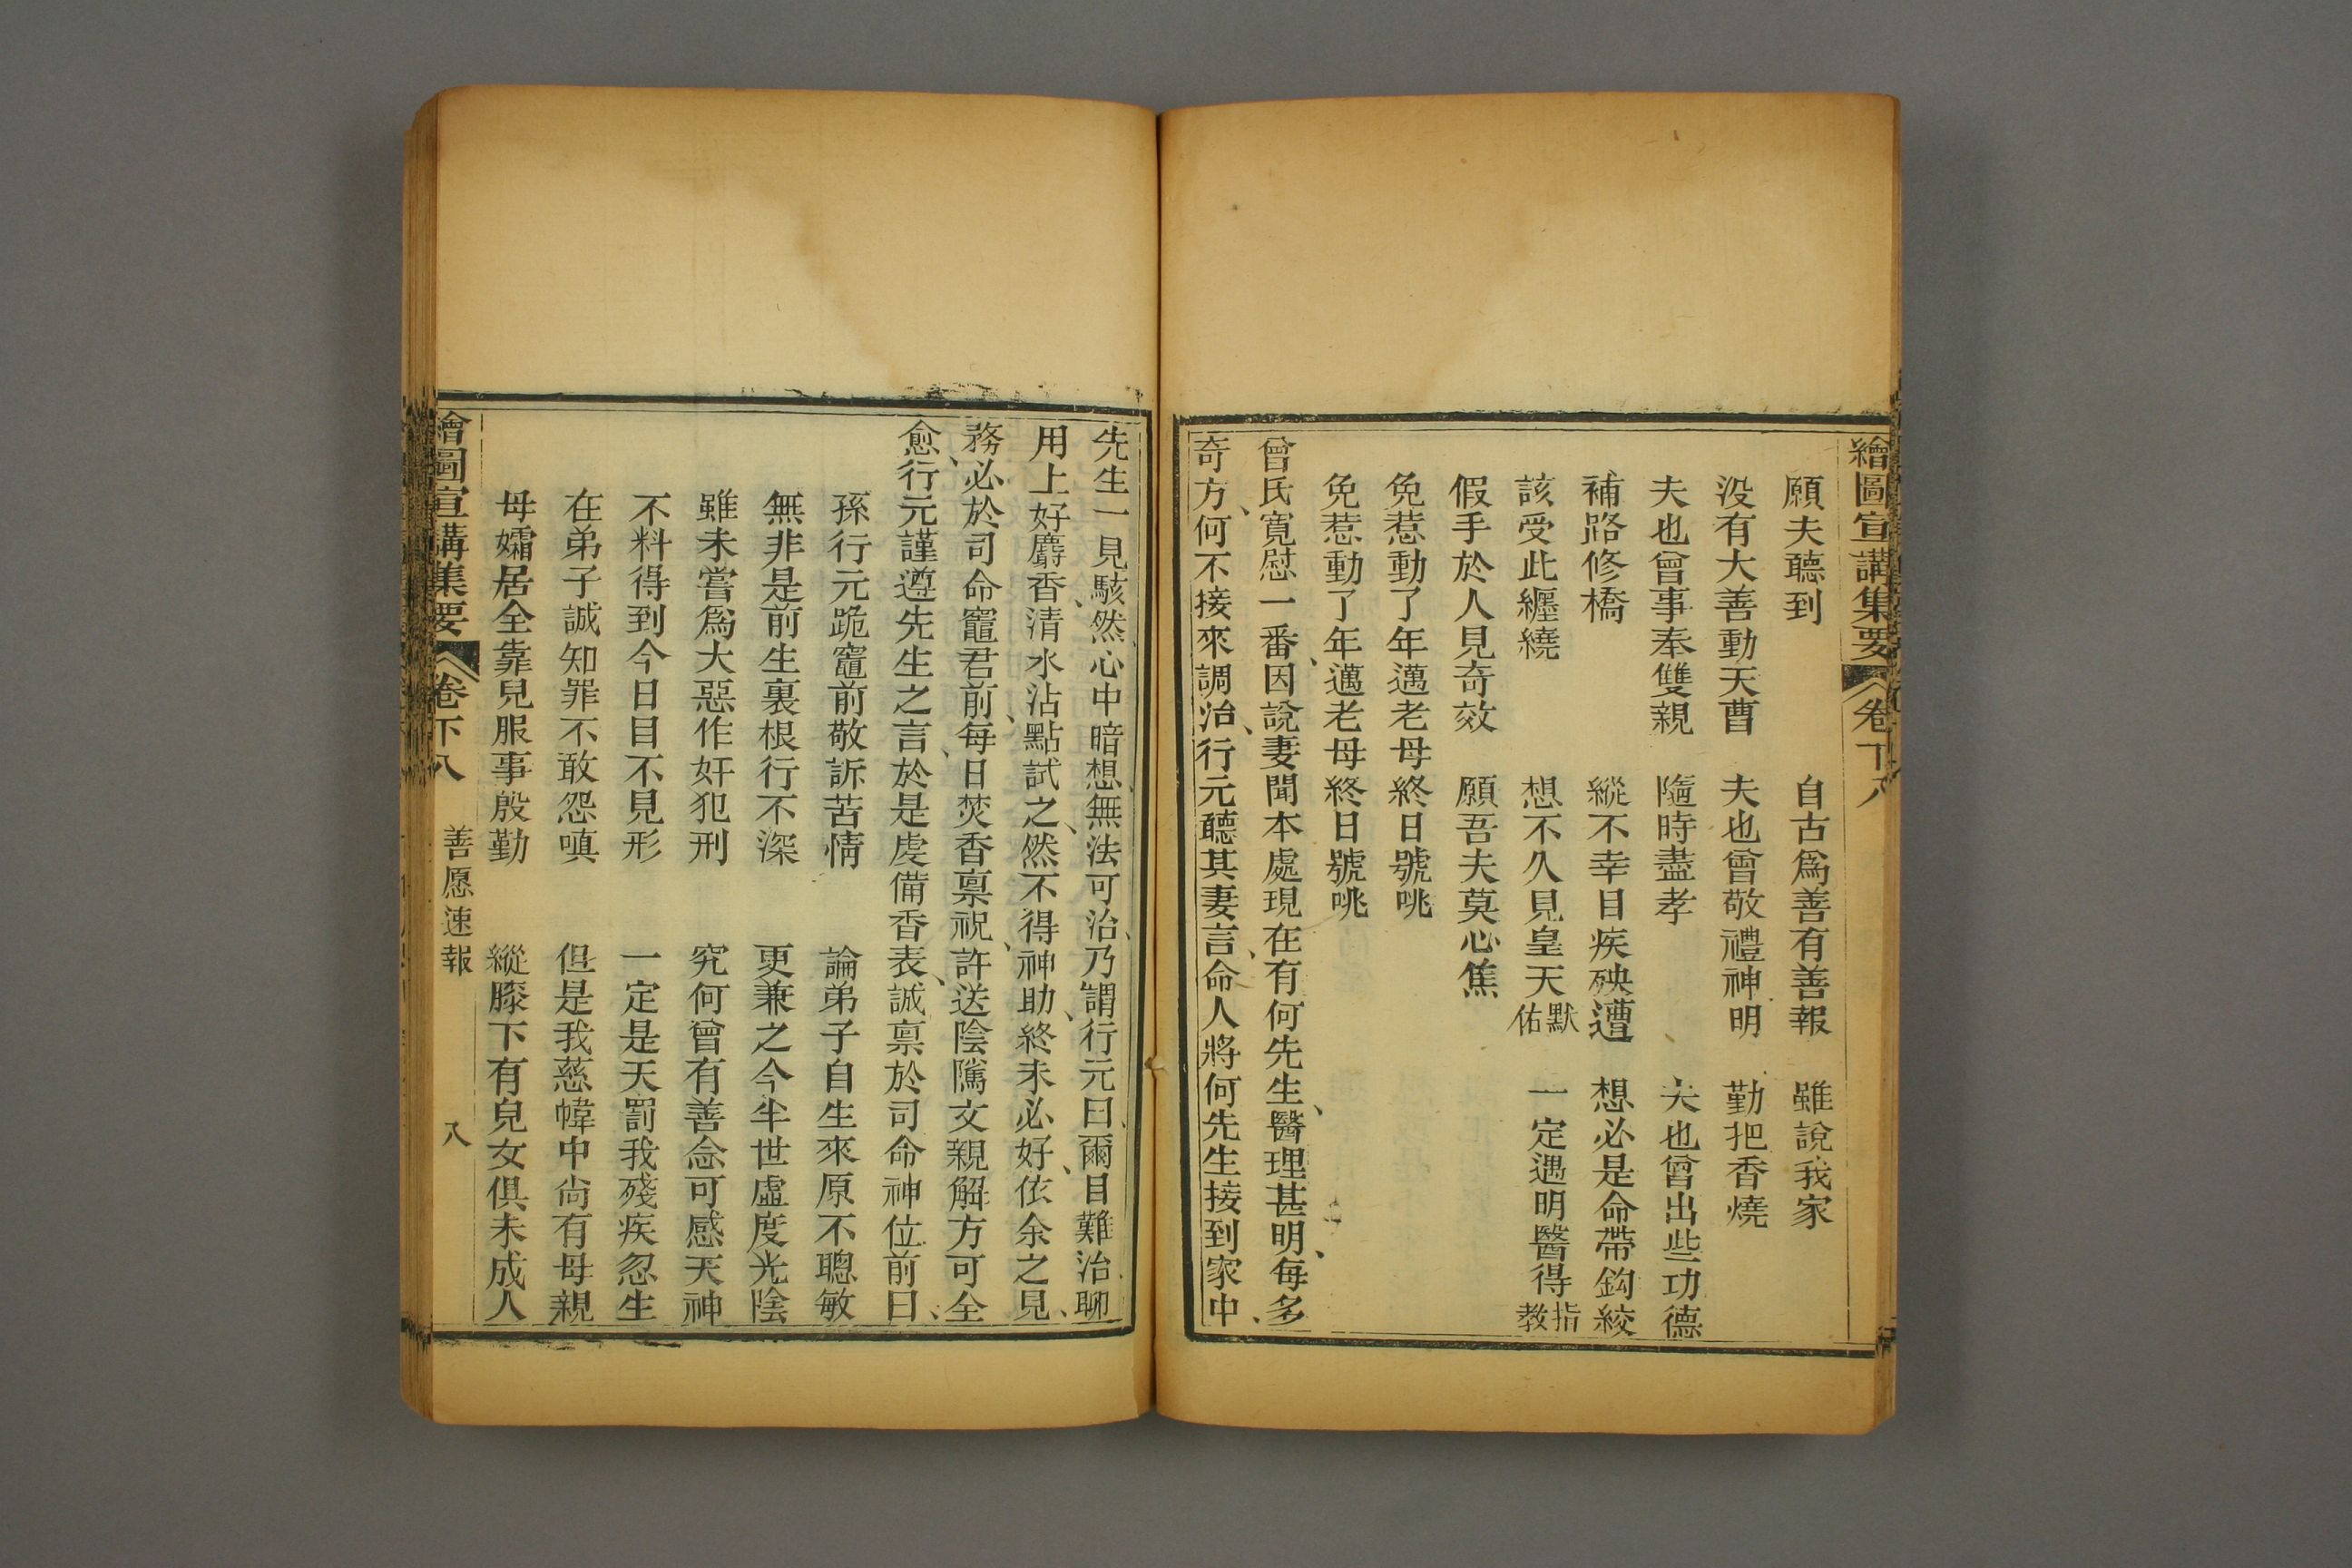 繪圖宣講集要 卷下八
願夫聽到 自古爲善有善報 雖說我家
没有大善動天曹 夫也曾敬禮神明 勤把香燒
夫也曾事奉雙親 隨時盡孝 夫也曾出些功德
補路修橋 縱不幸目疾殃遭 想必是命帶鈎絞
該受此纏繞 想不久見皇天默佑 一定遇明醫得指教
假手於人見奇效 願吾夫莫心焦
免惹動了年邁老母終日號咷
免惹動了年邁老母終日號咷
曾氏寬慰一番、因說妻聞本處現在有何先生、醫理甚明、每多
奇方、何不接來調治、行元聽其妻言、命人將何先生接到家中、
先生一見駭然、心中暗想、無法可治、乃謂行元曰、爾目難治、聊
用上好麝香、清水沾點試之、然不得神助、終未必好、依余之見、
務、必於司命竈君前、每日焚香禀祝、許送陰隲文、親解方可全
愈行元謹遵先生之言、於是虔備香表、誠禀於司命神位前曰、
孫行元跪竈前敬訴苦情 論弟子自生來原不聰敏
無非是前生裏根行不深 更兼之今半世虛度光陰
雖未嘗爲大惡作奸犯刑 究何曾有善念可感天神
不料得到今日目不見形 一定是天罰我殘疾忽生
在弟子誠知罪不敢怨嗔 但是我慈幃中尚有母親
母孀居全靠兒服事殷勤 縱膝下有兒女俱未成人
繪圖宣講集要 卷下八 善愿速報 八